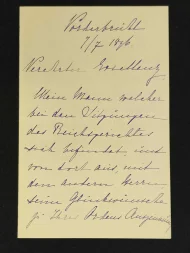 Vorderbrühl
7/7 1896
Verehrter Excellenz
Mein Mann welcher
bei den Sitzungen
des Reichsgerichtes
sich befindet, und
von dort aus, mit
den andern Herrn
seine Glückwünsche
zu Ihrer